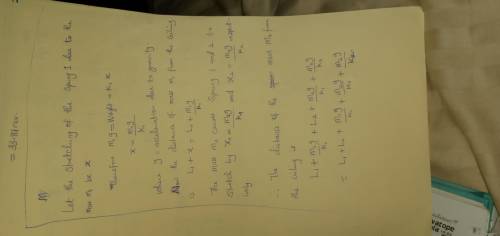 Let the stretching of the spring 1 due to the
mass m₁ be x
Therefore m₁g = K₁ x
x = m₁g/K₁
where g = acceleration due to gravity
Now the distance of mass m₁ from the ceiling
is L₁ + x = L₁ + m₁g/K₁
The mass m₂ cause spring 1 and 2 to
stretch by x₁ = m₂g/K₁ and x₂ = m₂g/K₂
∴ The distance of the mass m₂ from
the ceiling is
L₁ + m₁g/K₁ + L₂ + m₂g/K₁ + m₂g/K₂
= L₁ + L₂ + m₁g/K₁ + m₂g/K₁ + m₂g/K₂
vatope